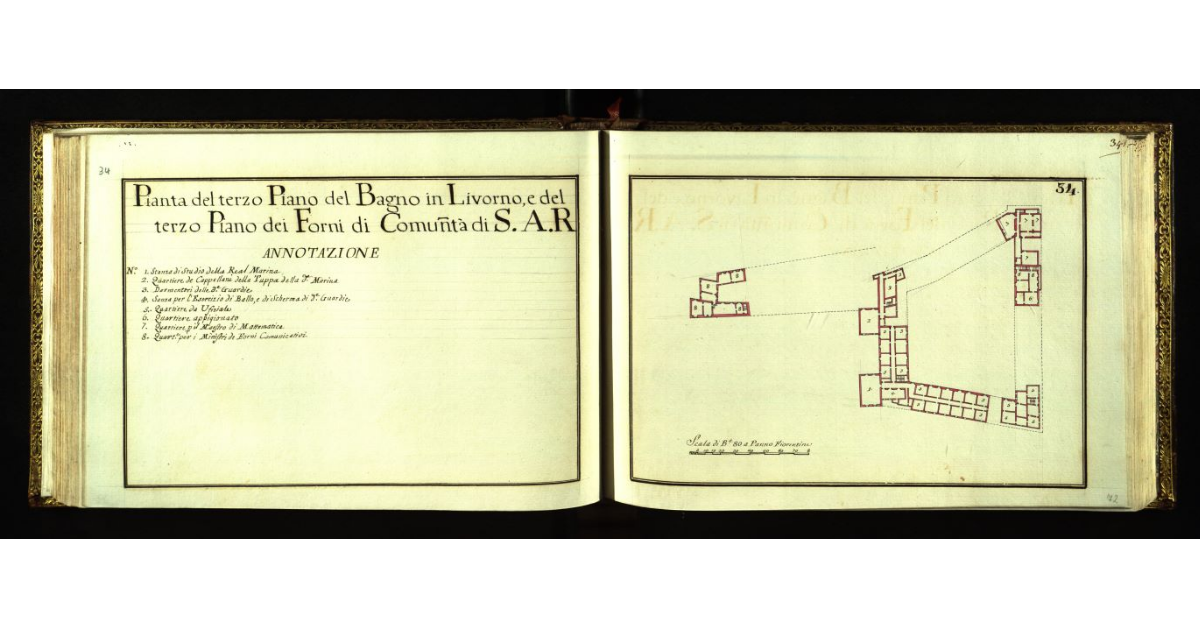 34
Pianta del terzo Piano del Bagno in Livorno, e del
terzo Piano dei Forni di Comun̄tà di S. A. R
ANNOTAZIONE
N.° 1. Stanza di Studio della Real Marina
2. Quartiere de Cappellani della Truppa della Mª Marina
3. Dormentori delle Guardie
4. Sala per l'Esercizio di Ballo, e di Scherma di Guardie
5. Quartiere da Ufiziale
6. Quartiere appigionato
7. Quartiere pel Maestro di Mattematica
8. Quart.° per i Ministri de Forni Comunicativi
34
51.
Scala di Bª 80 a Panno Fiorentine
42